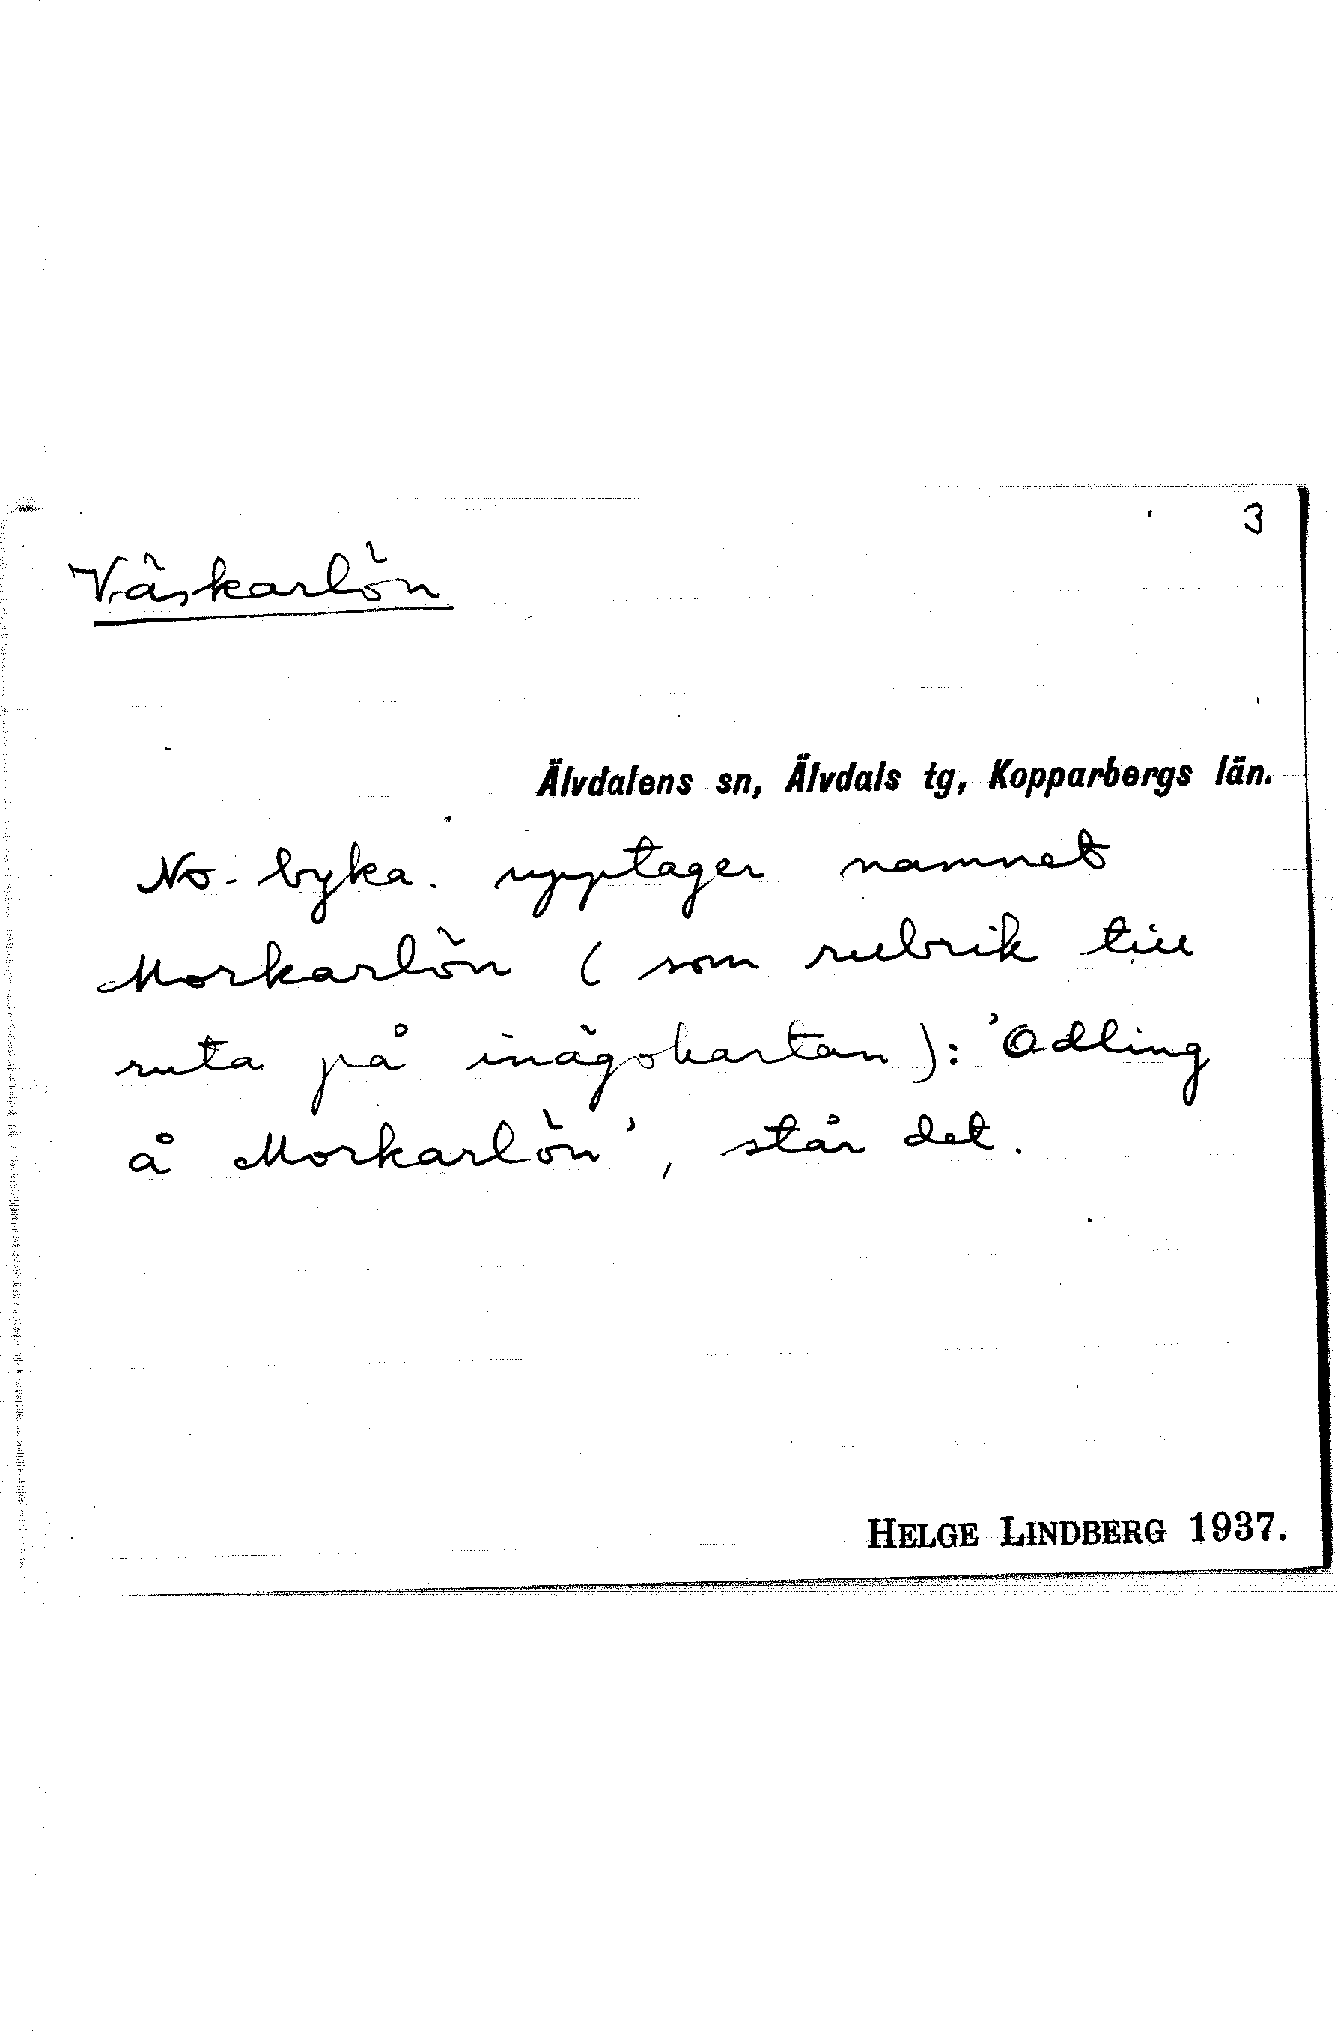 3
Väskarlön
Älvdalens sn, Älvdals tg, Kopparbergs län.
No- byka. upptager namnet
Morkarlön (som rubrik till
ruta på inägokartan): 'Odling
å Morkarlön', står det.
HELGE LINDBERG 1937.